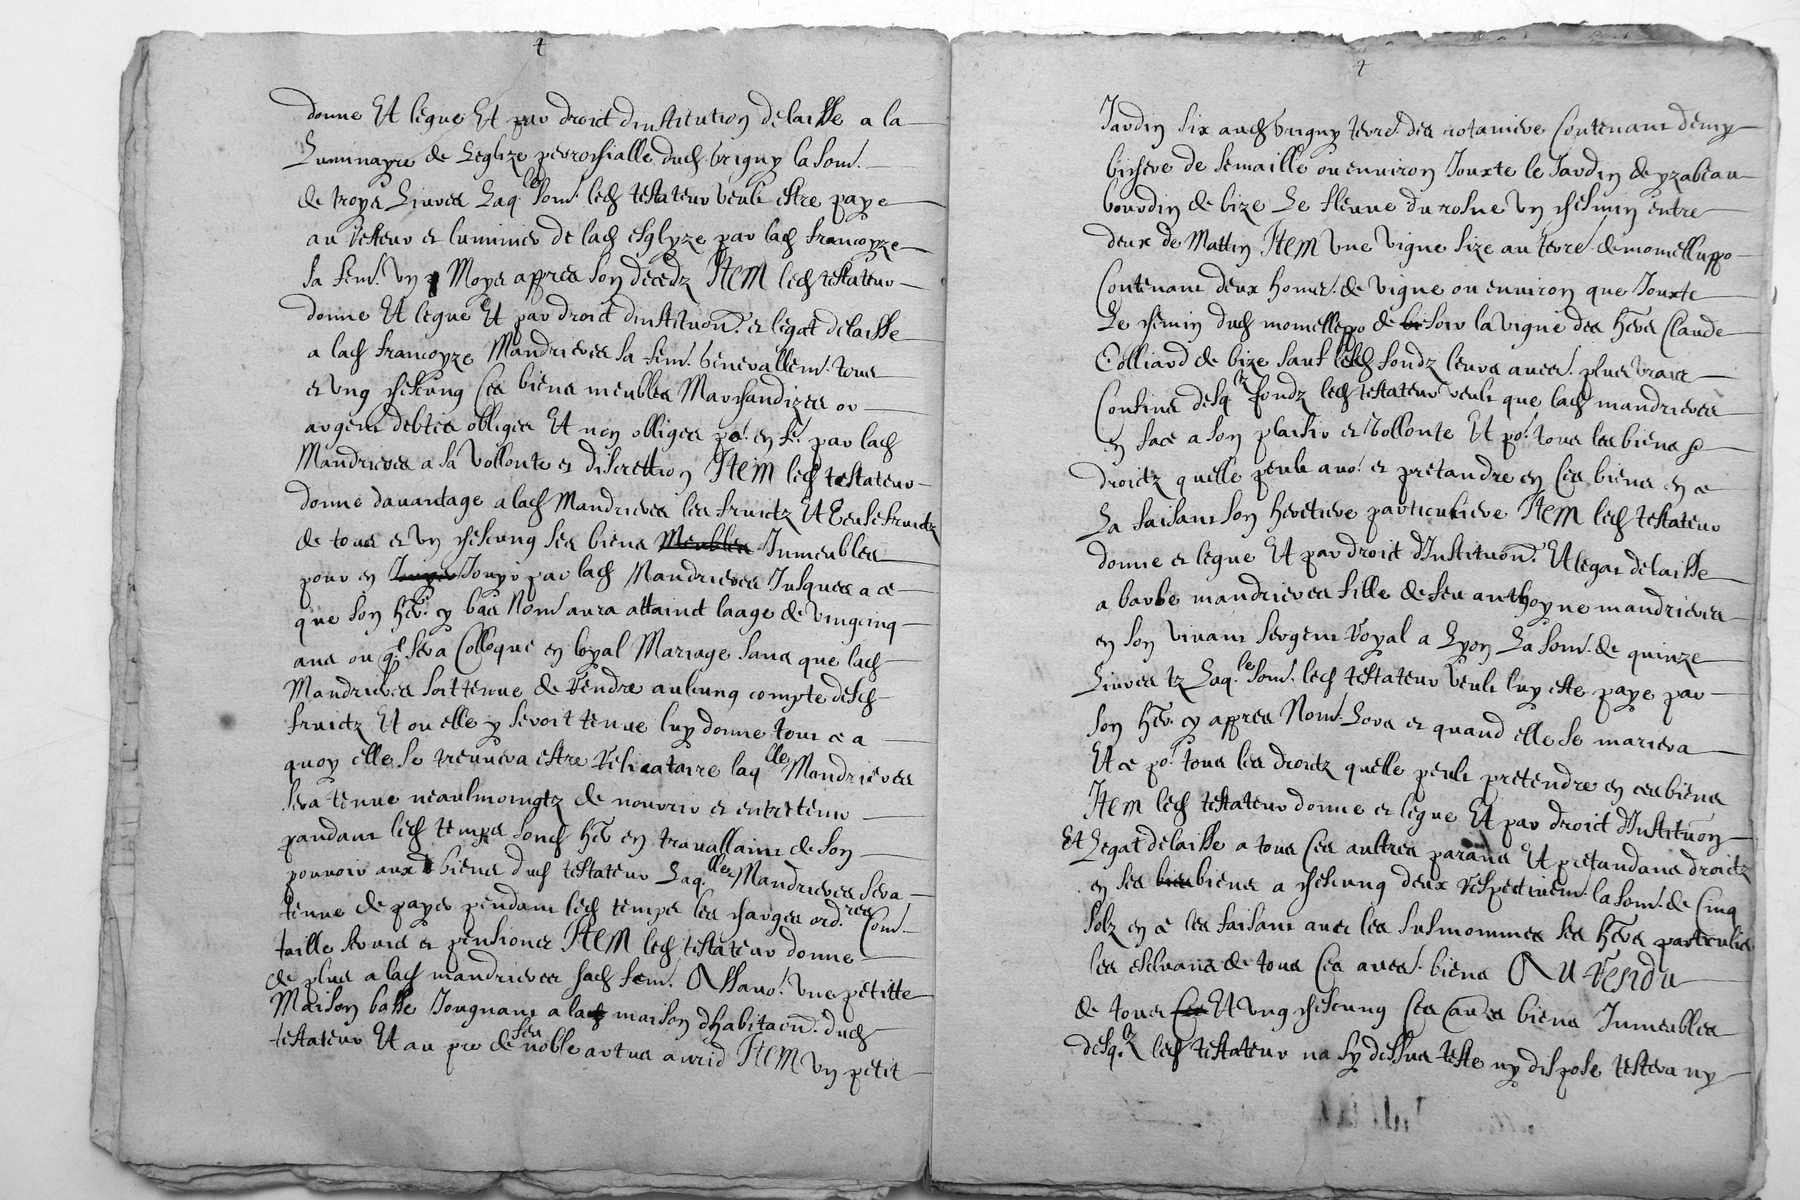 4
donne Et legue Et par droict dinstitution delaisse a la
Luminayre de Leglize perrochialle dud brigny la som.
de troys Livres Laq.lle som. led testateur veult estre paye
au Recteur et luminier de lad esglyze par lad francoyze
sa fem. Un Moys appres son decedz Item led testateur
donne Et legue Et par droict dinstituon. et legat delaisse
a lad francoyze Mandrieres sa fem. generallem. tous
et ung chescung ces biens meubles Marchandizes or
argent debtes obliges Et non obliges po.r en fe. par lad
Mandrieres a sa Vollonte et discrettion Item led testateur
donne davantage a lad Mandrieres les fruictz Et Eusefruictz
de tous et Un chescung ses biens Meubles Inmeubles
pour en Jouyr par lad Mandrieres Jusques a ce
que son her. cy bas Nom. aura attainct laage de vingcinq
ans ou q.l sera Colloque en loyal Mariage sans que lad
Mandrieres soit tenue de Rendre aulcung compte desd
fruictz Et ou elle y seroit tenue luy donne tout ce a
quoy elle se treuvera estre Relicataire laq.lle Mandrieres
sera tenue neaulmoingtz de nourrir et entretenir
pandant led temps sond her en travallaint de son
pouvoir aux biens dud testateur Laq.lle Mandrieres sera
tenue de payer pendant led temps les charges ord.res Com.
taille servis et pensiones Item led testateur donne
de plus a lad mandrieres sad fem. Assavo.r Une petitte
Maison basse Jougnant a la maison dhabitaon. dud
testateur Et au pre de feu noble artus avrid Item Un petit
4
Jardin six aud brigny terre. des rotanieve Contenant demy
bichere de semaille ou environ Jouxte le Jardin de yzabeau
bourdin de bize Le fleuve du rosne Un chemin entre
deux de Mattin Item Une vigne size au terre. de momelluppo
Contenant deux homes. de vigne ou environ que Jouxte
Le chemin dud momelleppo de soir la vigne des hers Claude
Colliard de bize sauf lesd fondz leurs aues. plus vrais
Confins desq.lz fondz led testateur veult que lad mandrieres
en face a son plaisir et Vollonte Et po.r tous les biens
droictz quelle peult avo.r et pretandre en ces biens en ce
La faisant son heretiere particuliere Item led testateur
donne et legue Et par droict dInstituon. Et legat delaisse
a barbe mandrieres fille de feu anthoyne mandrieres
en son vivant sergent Royal a Lyon La som. de quinze
Livres tz Laq.lle som. led testateur Veult luy este paye par
son her. cy appres Nom. Lors et quand elle se mariera
Et ce po.r tous les droictz quelle peult pretendre en ces biens
Item led testateur donne et legue Et par droict dInstituon
Et Legat delaisse a tous ces aultres parans Et pretandans droictz
en ses bies biens a chescung deux Respectivem. la som. de Cinq
solz en ce les faisant avec les susnommes ses hers particulie
les escluans de tous ces aues. biens Au Residu
de tous Ces Et Ung chescung Ces Caues biens Inmeubles
desq.lz led testateur na sy dessus teste ny dispose testera ny